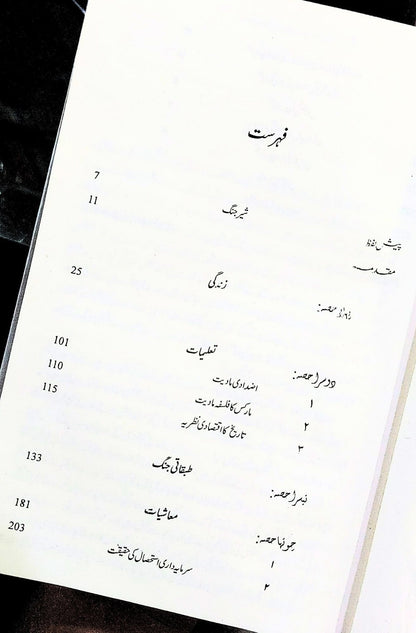 فہرست
پیش لفظ 7
مقدمہ شیر جنگ 11
پہلا حصہ: زندگی 25
دوسرا حصہ: تعلیمات
۱ اضدادی مادیت 101
۲ مارکس کا فلسفہ مادیت 110
۳ تاریخ کا اقتصادی نظریہ 115
تیسرا حصہ: طبقاتی جنگ 133
چوتھا حصہ: معاشیات
۱ 181
۲ سرمایہ داری استحصال کی حقیقت 203